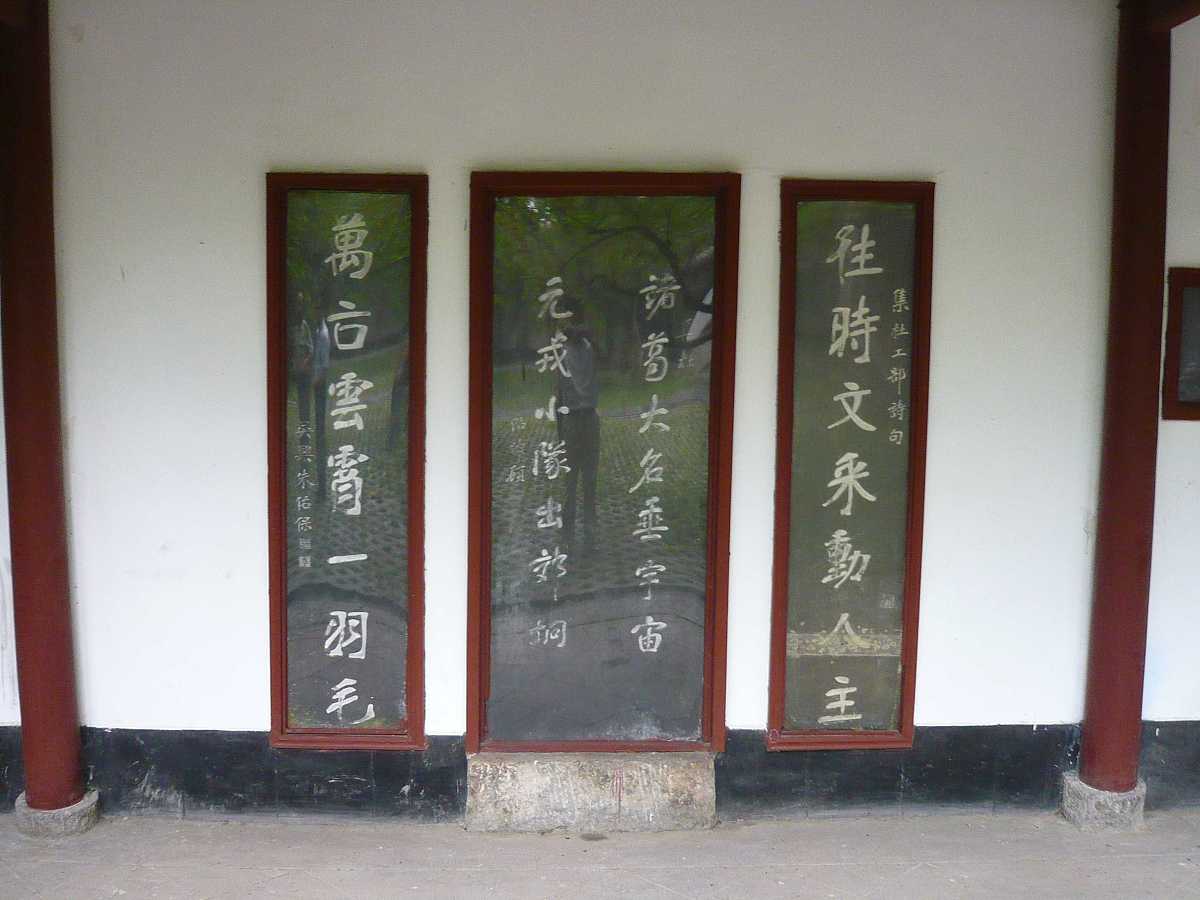 集杜工部詩句
往時文采動人主
諸葛大名垂宇宙
元戎小隊出郊坰
萬古雲霄一羽毛
吳興朱佑保